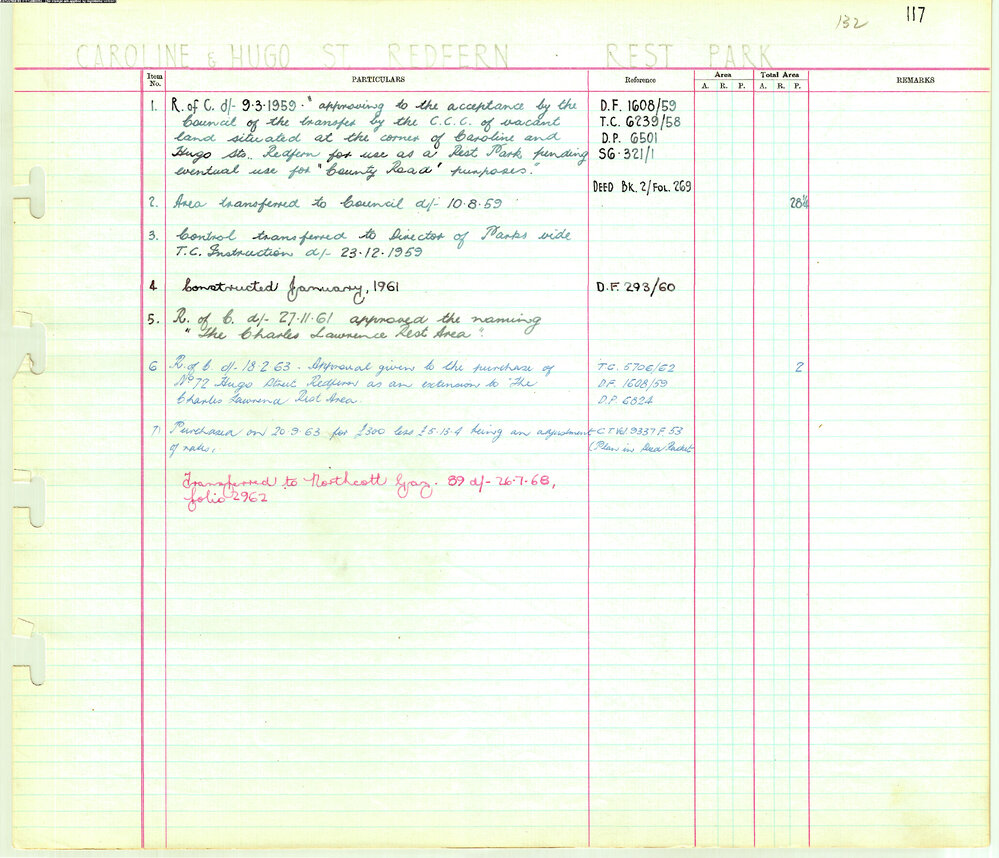 132 117
CAROLINE & HUGO ST REDFERN REST PARK
Item No. PARTICULARS Reference Area Total Area REMARKS
A. R. P. A. R. P.
1. R. of C. d/- 9-3-1959. "approving to the acceptance by the D.F. 1608/59
Council of the transfer by the C.C.C. of vacant T.C. 6239/58
land situated at the corner of Caroline and D.P. 6501
Hugo Sts. Redfern for use as a Rest Park pending SG-321/1
eventual use for "County Road" purposes."
DEED BK. 2/FOL. 269
2. Area transferred to Council d/- 10-8-59 28¼
3. Control transferred to Director of Parks vide
T.C. Instruction d/- 23-12-1959
4 Constructed January, 1961 D.F. 293/60
5. R. of C. d/- 27-11-61 approved the naming
"The Charles Lawrence Rest Area".
6 R. of C. d/- 18-2-63. Approval given to the purchase of T.C. 5706/62 2
No 72 Hugo Street Redfern as an extension to The D.F. 1608/59
Charles Lawrence Rest Area. D.P. 6824
7 Purchased on 20-9-63 for £300 less £5-13-4 being an adjustment C.T. Vol 9337 F. 53
of rates. (Plan in Deed Packet
Transferred to Northcott Gaz. 89 d/- 26-7-68,
folio 2962